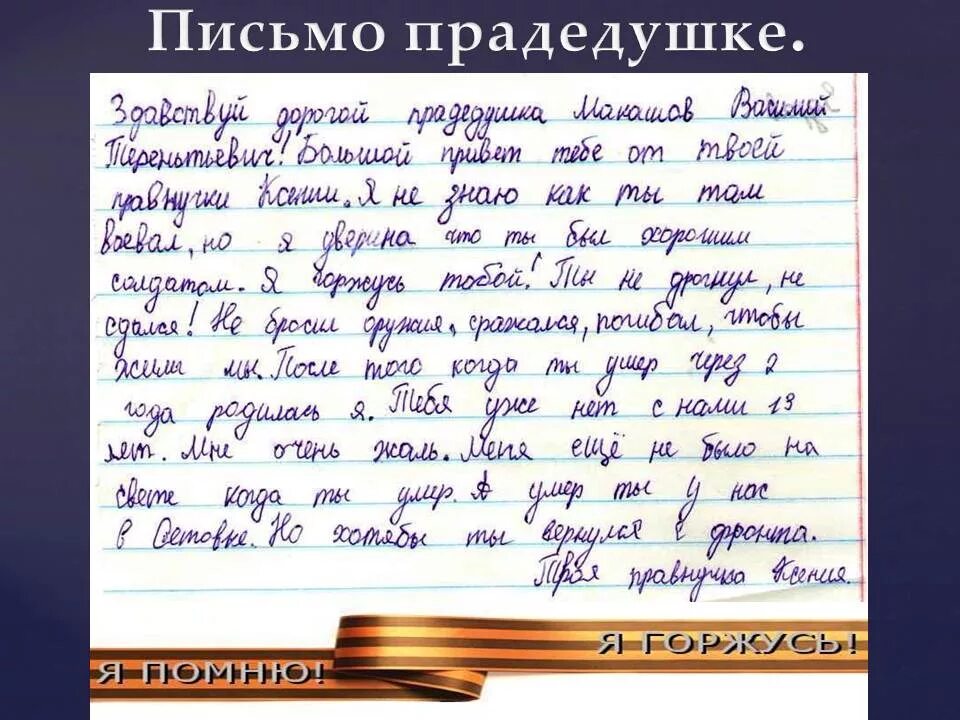 Письмо прадедушке.
Здавствуй дорогой прадедушка Макашов Василий
Терентьевич! Большой привет тебе от твоей
правнучки Ксении. Я не знаю как ты там
воевал, но я уверина что ты был хорошим
солдатом. Я горжусь тобой! Ты не дрогнул, не
сдался! Не бросил оружия, сражался, погибал, чтобы
жили мы. После того когда ты умер через 2
года родилась я. Тебя уже нет с нами 13
лет. Мне очень жаль. Меня ещё не было на
свете когда ты умер. А умер ты у нас
в Сетовке. Но хотябы ты вернулся с фронта.
Твоя правнучка Ксения.
Я ГОРЖУСЬ!
Я ПОМНЮ!